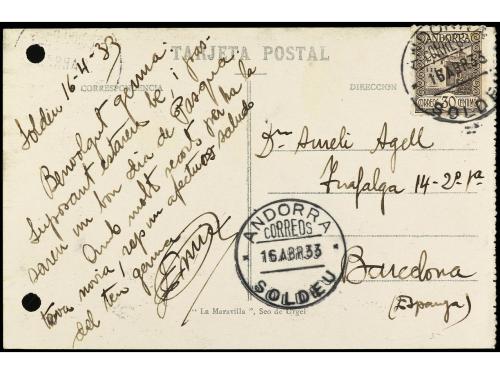 TARJETA POSTAL
CORRESPONDENCIA
DIRECCION
Soldeu 16-4-33
Benvolgut germà:
Suposant estareu bé, i pas-
sareu un bon dia de Pasqua
Amb molt recort per ha la
teva novia, reps un afectuós saludo
del teu germà
ANDORRA
CORREOS
30 CENTIMOS
ANDORRA
CORREOS
16 ABR 33
SOLDEU
Dn Aureli Agell
14-2º 1ª
Barcelona
(Espanya)
ANDORRA
CORREOS
16 ABR 33
SOLDEU
"La Maravilla", Seo de Urgel